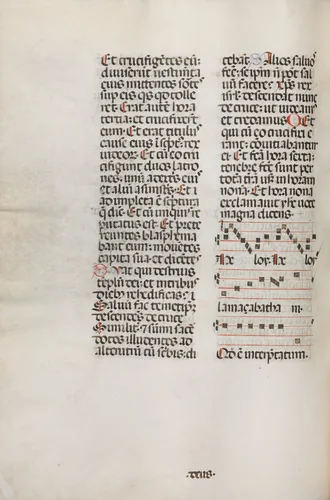 Et crucifigētes eū:
diuiserūt uestimēta
eius mittentes sorte
sup eis q̄s qd tolle
ret. Erat autē hora
tertia: et crucifixerūt
eum. Et erat titulus
cause eius iscpt9: rex
iudeor. Et cū eo cru
cifigunt duos latro
nes: unū a dextris eius
et aliū a sinistris. Et i
adimpleta ē scptura
q̄ dicit. Et cū iniquis re
putatus est. Et prete
reuntes blasphema
bant eum: mouētes
capita sua et dicētes.
Vat qui destruis
templū dei: et in tribus
diebz rehedificas:
Saluū fac temetipsum
descendens de cruce
Similit et summi sacer
dotes illudentes ad
alterutrū cū scribis: di
cebāt. Alios saluos
fec: seipm nō pot sal
uū facere. Xps rex
isrl descendat nunc
de cruce: ut uideam9
et credamus. Et
qui cū eo crucifixi e
rant: conuitiabantur
ei. Et fca hora sexta:
tenebre fce sunt per
totā trā usq in horam
nonā. Et hora nona
exclamauit yhs uoce
magna dicens.
loy loy
lamaçabatha ni.
Qd ē interptatum.